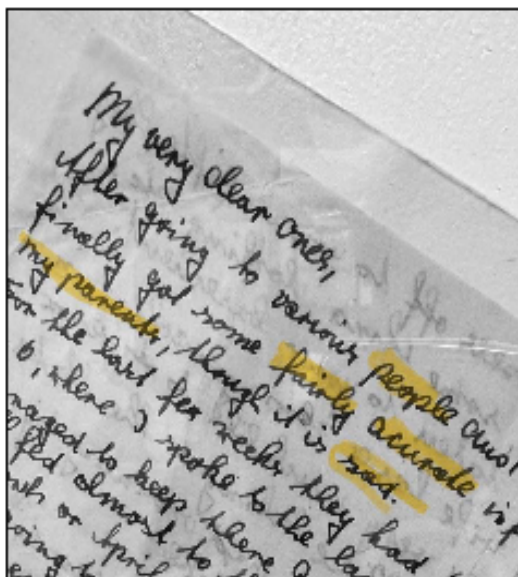 My very dear ones,
After going to various people and
finally got some fairly acurate inf
my parents, though it is sad.
For the last few weeks they had
6, where I spoke to the la
naged to keep there
fed almost to th
or April
going to